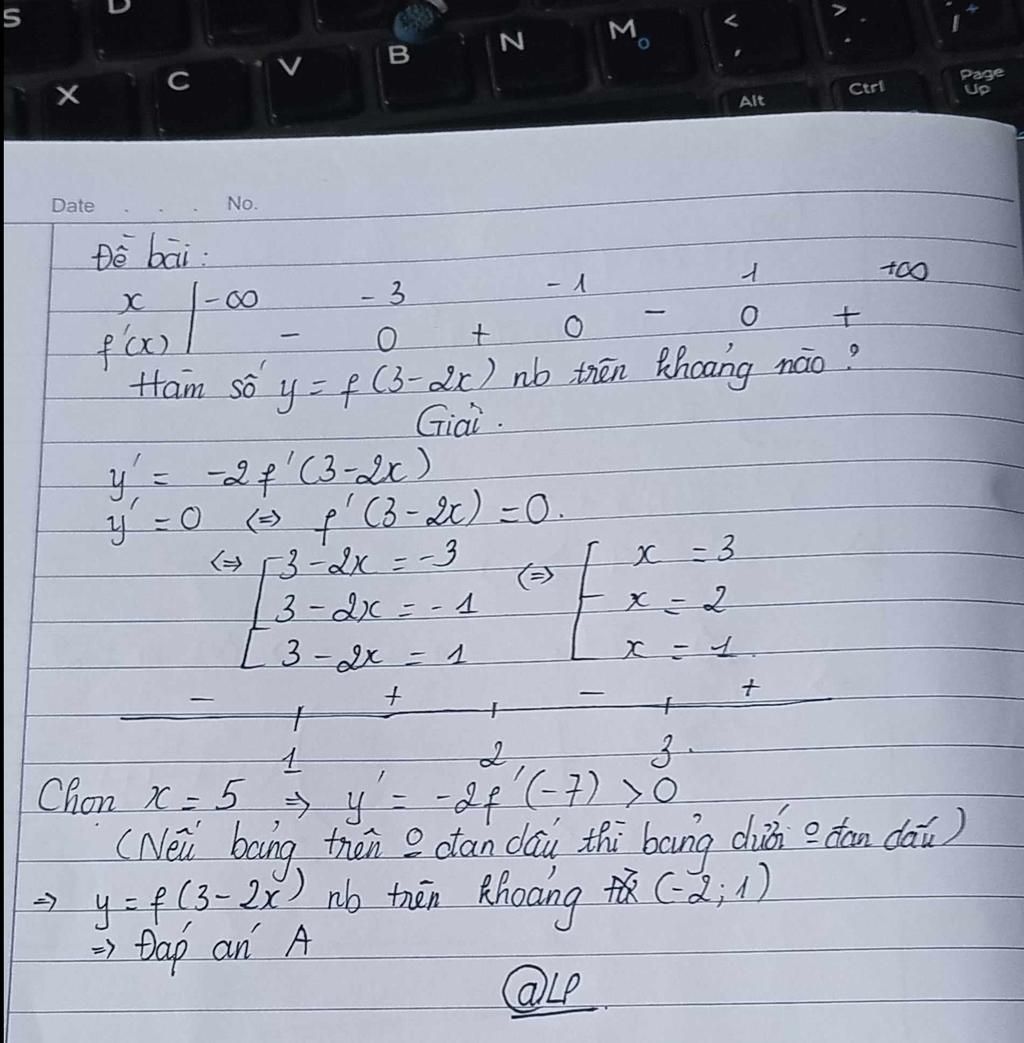 S D
X C V B N M < , > . /
Alt Ctrl Page Up
Date . . . No.
Đề bài :
x -∞ -3 -1 1 +∞
f'(x) - 0 + 0 - 0 +
Hàm số y = f(3-2x) nb trên khoảng nào ?
Giải .
y' = -2f'(3-2x)
y' = 0 <=> f'(3-2x) = 0.
<=> [ 3-2x = -3 <=> [ x = 3
3-2x = -1 x = 2
3-2x = 1 x = 1.
- + - +
1 2 3.
Chọn x = 5 => y' = -2f'(-7) > 0
(Nếu bảng trên o đan dấu thì bảng dưới o đan dấu)
=> y = f(3-2x) nb trên khoảng (-2; 1)
=> Đáp án A
@LP